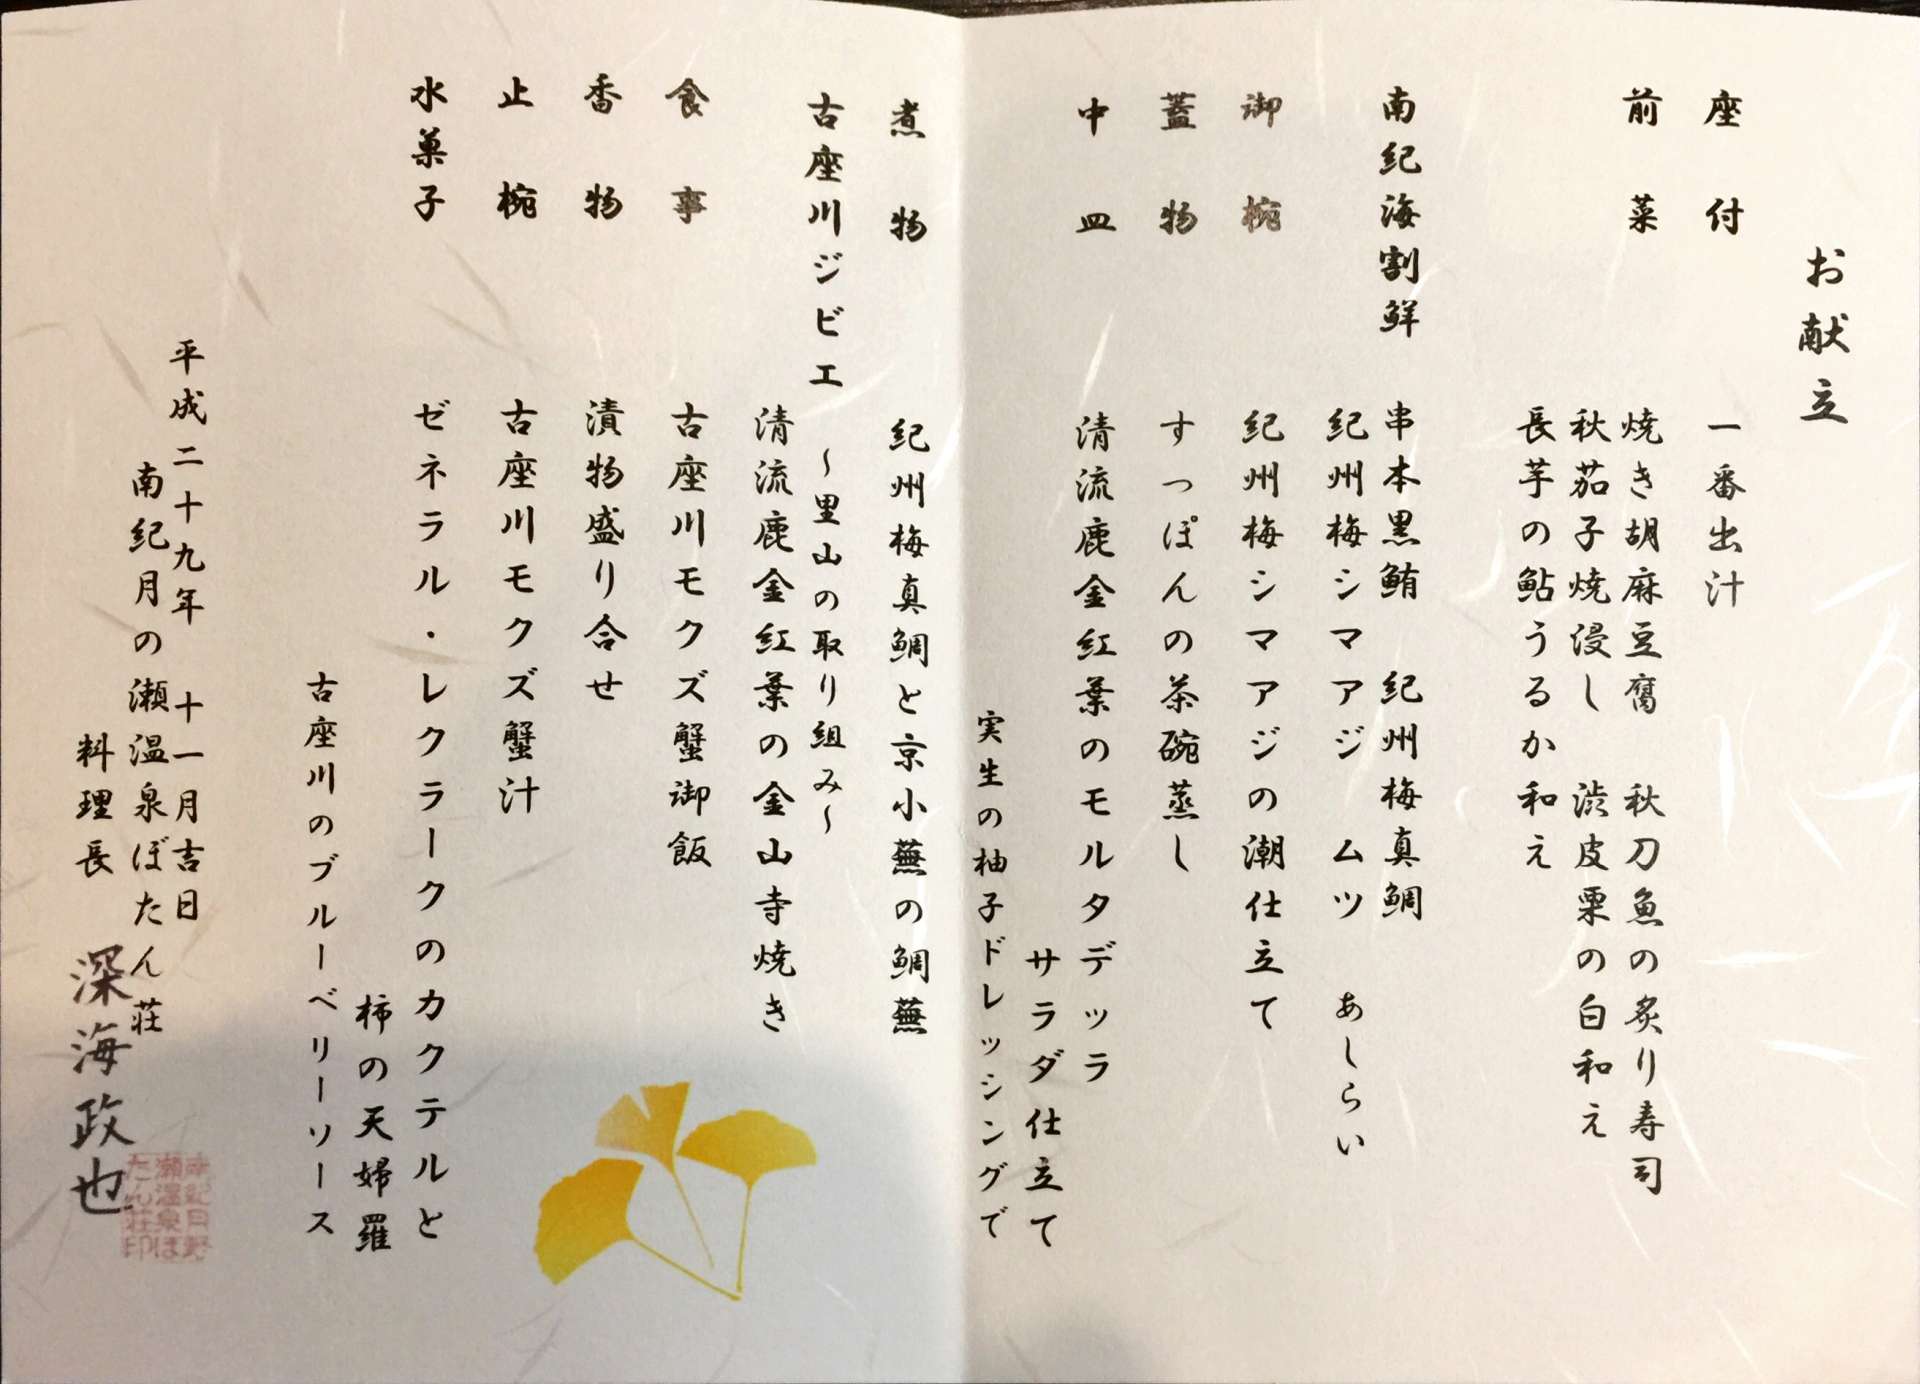 お献立
座付　一番出汁
前菜　焼き胡麻豆腐　秋刀魚の炙り寿司
秋茄子焼浸し　渋皮栗の白和え
長芋の鮎うるか和え
南紀海割鮮　串本黒鮪　紀州梅真鯛
紀州梅シマアジ　ムツ　あしらい
御椀　紀州梅シマアジの潮仕立て
蓋物　すっぽんの茶碗蒸し
中皿　清流鹿金紅葉のモルタデッラ
サラダ仕立て
実生の柚子ドレッシングで
煮物　紀州梅真鯛と京小蕪の鯛蕪
古座川ジビエ　～里山の取り組み～
清流鹿金紅葉の金山寺焼き
食事　古座川モクズ蟹御飯
香物　漬物盛り合せ
止椀　古座川モクズ蟹汁
水菓子　ゼネラル・レクラークのカクテルと
柿の天婦羅
古座川のブルーベリーソース
平成二十九年　十一月吉日
南紀月の瀬温泉ぼたん荘
料理長　深海政也